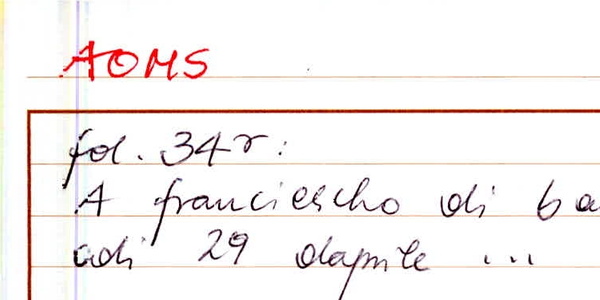 AOMS
fol. 34r:
A franciescho di ba
adi 29 daprile ...